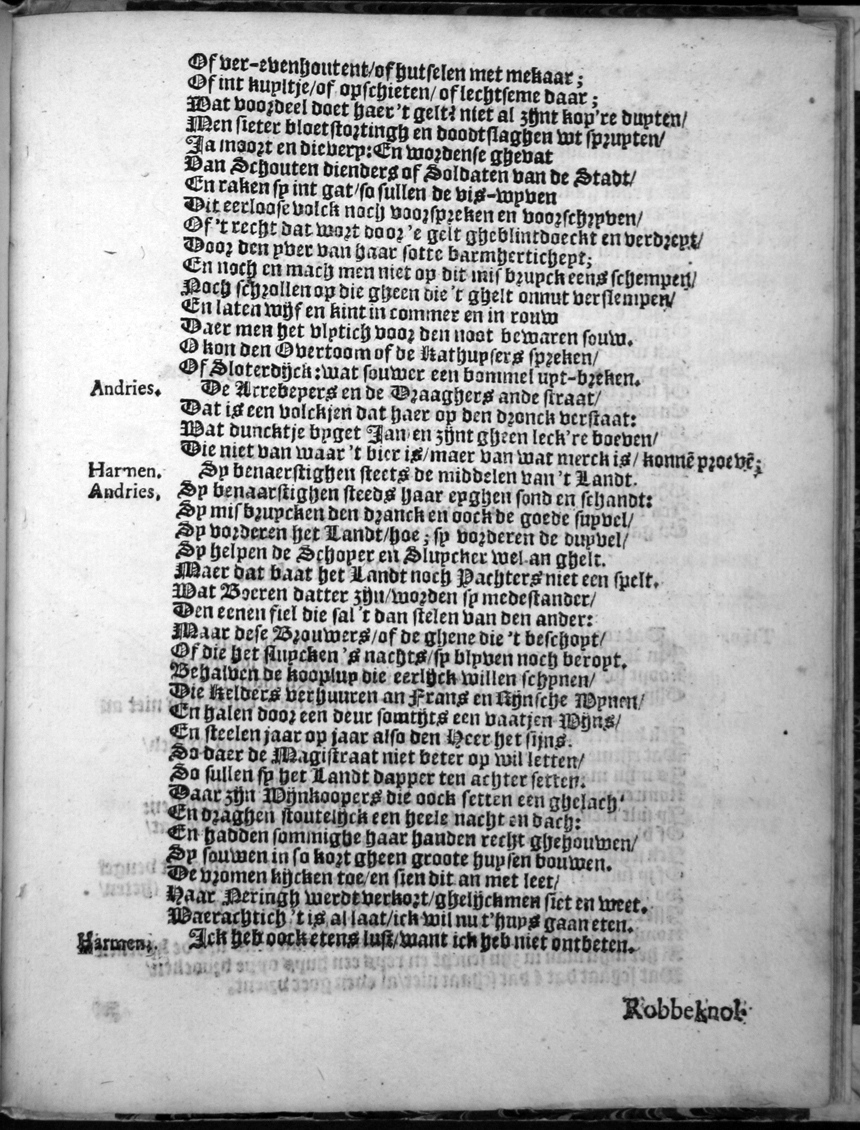 Of ver-evenhoutent/of hutselen met mekaar;
Of int kuyltje/of opschieten/ of lechtseme daar;
Wat voordeel doet haer 't gelt? niet al zijnt kop're duyten/
Men sieter bloetstortingh en doodtslaghen wt spruyten/
Ja moort en dievery: En wordense ghevat
Van Schouten dienders of Soldaten van de Stadt/
En raken sy int gat/so sullen de vis-wyven
Dit eerloose volck noch voorspreken en voorschryven/
Of 't recht dat wort door 'e gelt gheblintdoeckt en verdreyt/
Door den yver van haar sotte barmherticheyt;
En noch en mach men niet op dit misbruyck eens schempen/
Noch schrollen op die gheen die 't ghelt onnut verslempen/
En laten wijf en kint in commer en in rouw
Daer men het vlytich voor den noot bewaren souw.
O kon den Overtoom of de Kathuysers spreken/
Of Sloterdijck: wat souwer een bommel uyt-breken.
Andries. De Arrebeyers en de Draaghers ande straat/
Dat is een volckjen dat haer op den dronck verstaat:
Wat duncktje byget Jan en zijnt gheen leck're boeven/
Die niet van waar 't bier is/maer van wat merck is/ konnē proevē;
Harmen. Sy benaerstighen steets de middelen van 't Landt.
Andries. Sy benaarstighen steeds haar eyghen sond en schandt:
Sy misbruycken den dranck en oock de goede suyvel/
Sy vorderen het Landt/hoe; sy vorderen de duyvel/
Sy helpen de Schoyer en Sluycker wel an ghelt.
Maer dat baat het Landt noch Pachters niet een spelt.
Wat Boeren datter zijn/worden sy medestander/
Den eenen fiel die sal 't dan stelen van den ander:
Maar dese Brouwers/of de ghene die 't beschoyt/
Of die het sluycken 's nachts/sy blyven noch beroyt.
Behalven de kooplup die eerlijck willen schynen/
Die Kelders verhuuren an Frans en Rijnsche Wynen/
En halen door een deur somtijts een vaatjen Wijns/
En steelen jaar op jaar also den Heer het sijns.
So daer de Magistraat niet beter op wil letten/
So sullen sy het Landt dapper ten achter setten.
Daar zijn Wijnkoopers die oock setten een ghelach
En draghen stoutelijck een heele nacht en dach:
En hadden sommighe haar handen recht ghehouwen/
Sy souwen in so kort gheen groote huysen bouwen.
De vromen kijcken toe/en sien dit an met leet/
Haar Neringh werdt verkort/ghelijckmen siet en weet.
Waerachtich 't is al laat/ick wil nu t'huys gaan eten.
Harmen. Ick heb oock etens lust/want ick heb niet ontbeten.
Robbeknol